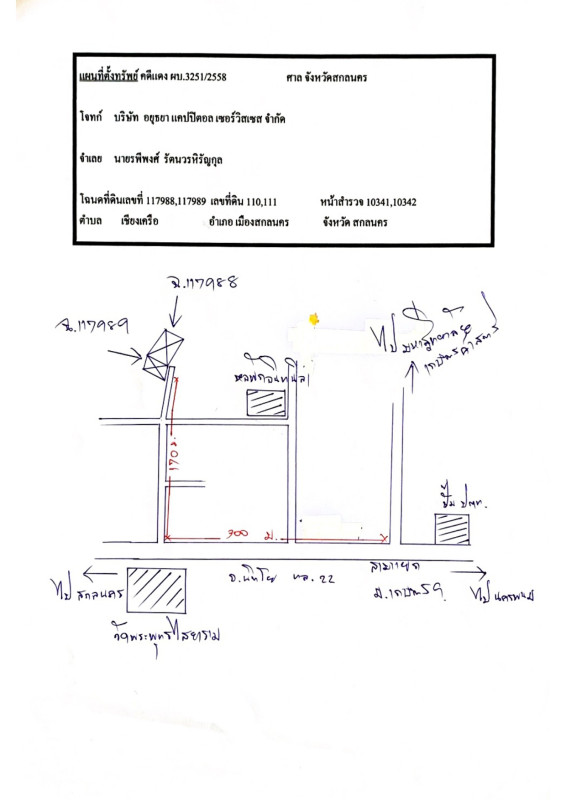 แผนที่ตั้งทรัพย์ คดีแดง ผบ.3251/2558 ศาล จังหวัดสกลนคร
โจทก์ บริษัท อยุธยา แคปปิตอล เซอร์วิสเซส จำกัด
จำเลย นายรพีพงศ์ รัตนวรหิรัญกุล
โฉนดที่ดินเลขที่ 117988,117989 เลขที่ดิน 110,111 หน้าสำรวจ 10341,10342
ตำบล เชียงเครือ อำเภอ เมืองสกลนคร จังหวัด สกลนคร
ฉ.117988
ฉ.117989
ไป มหาวิทยาลัย
เกษตรศาสตร์
หอพักอินทนิล
170 ม.
ปั๊ม ปตท.
900 ม.
ถ.นิตโย ทล.22
สามแยก
ม.เกษตรฯ
ไป สกลนคร
ไป นครพนม
วัดพระพุทธไสยาราม